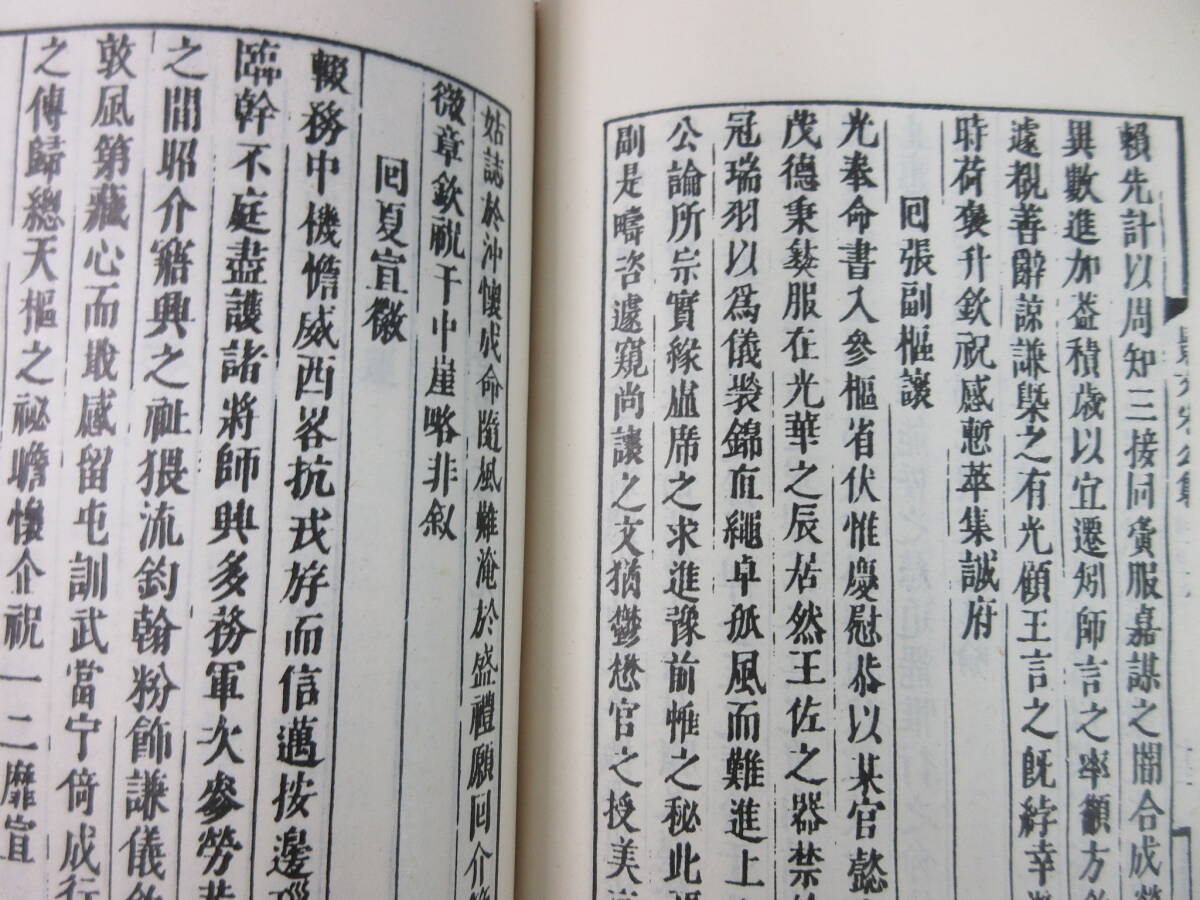 賴先計以周知三接同賚服嘉謀之開合成勞
異數進加葢積歲以宜遷矧師言之率籲方
遽覩善辭諒謙槩之有光顧王言之旣綍幸
時荷褒升欽祝感慙萃集誠府
回張副樞讓
光奉命書入參樞省伏惟慶慰恭以某官懿
茂德秉彝服在光華之辰居然王佐之器禁
冠瑞羽以爲儀裳錦亘繩卓孤風而難進上
公論所宗實緣虛席之求進豫前帷之秘此
副是疇咨遽窺尚讓之文猶鬱懋官之授美
姑誌於沖懷成命隨風難淹於盛禮願回介
徽章欽祝干中崖略非叙
回夏宣徽
輟務中機憺威西畧抗戎㳺而信邁按邊
臨幹不庭盡護諸將師興多務軍次參勞
之間昭介寤興之祉猥流鈞翰粉飾謙儀
敦風第藏心而戢感留屯訓武當宁倚成
之傳歸總天樞之祕瞻懷介祝一二靡宣